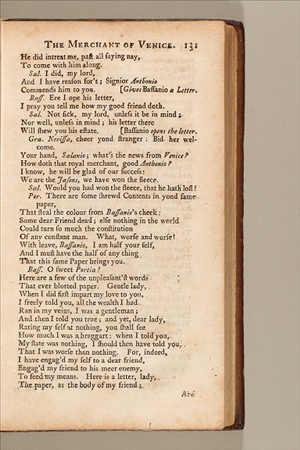 The Merchant of Venice. 131
He did intreat me, paſt all ſaying nay,
To come with him along.
Sal. I did, my lord,
And I have reaſon for't; Signior Anthonio
Commends him to you. [Gives Baſſanio a Letter.
Baſſ. Ere I ope his letter,
I pray you tell me how my good friend doth.
Sal. Not ſick, my lord, unleſs it be in mind;
Nor well, unleſs in mind; his letter there
Will ſhew you his eſtate. [Baſſanio opens the letter.
Gra. Neriſſa, cheer yond ſtranger: Bid her wel-
come.
Your hand, Salanio; what's the news from Venice?
How doth that royal merchant, good Anthonio?
I know, he will be glad of our ſucceſs:
We are the Jaſons, we have won the fleece.
Sal. Would you had won the fleece, that he hath loſt!
Por. There are ſome ſhrewd Contents in yond ſame
paper,
That ſteal the colour from Baſſanio's cheek:
Some dear Friend dead; elſe nothing in the world
Could turn ſo much the conſtitution
Of any conſtant man. What, worſe and worſe!
With leave, Baſſanio, I am half your ſelf,
And I muſt have the half of any thing
That this ſame Paper brings you.
Baſſ. O ſweet Portia!
Here are a few of the unpleaſant'ſt words
That ever blotted paper. Gentle lady,
When I did firſt impart my love to you,
I freely told you, all the wealth I had
Ran in my veins, I was a gentleman;
And then I told you true; and yet, dear lady,
Rating my ſelf at nothing, you ſhall ſee
How much I was a braggart: when I told you,
My ſtate was nothing, I ſhould then have told you,
That I was worſe than nothing. For, indeed,
I have engag'd my ſelf to a dear friend,
Engag'd my friend to his meer enemy,
To feed my means. Here is a letter, lady,
The paper, as the body of my friend;
And